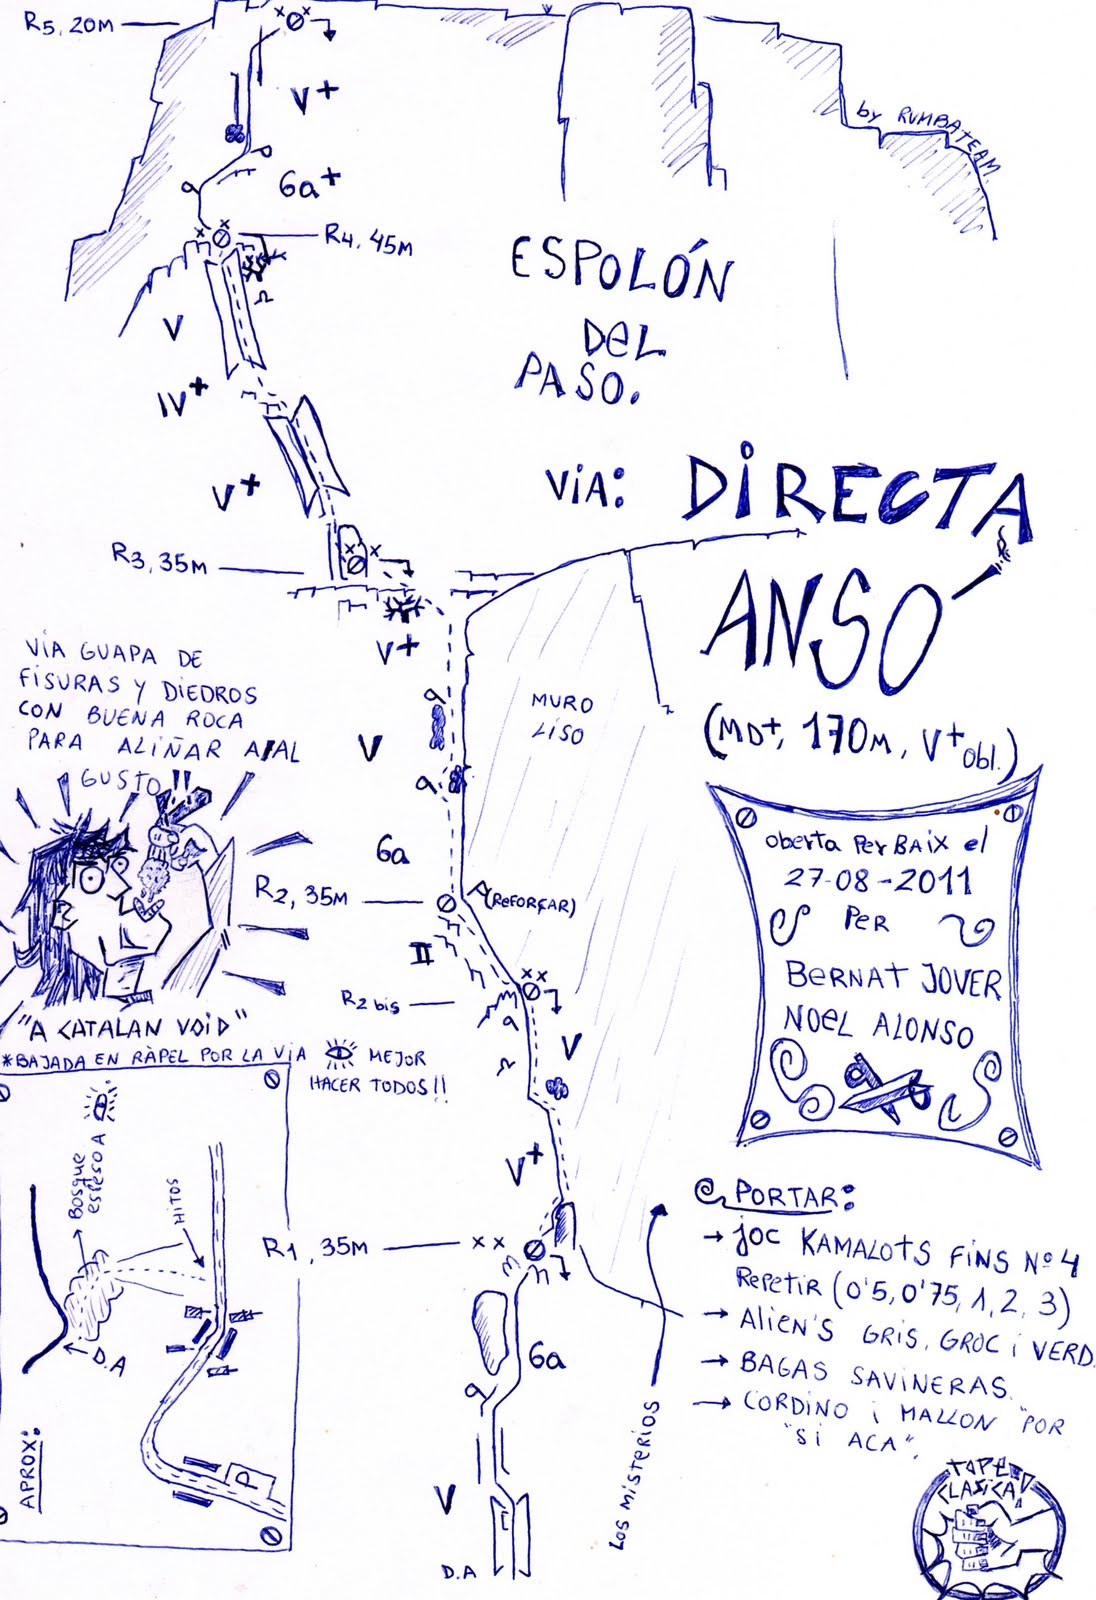 R5, 20M
V+
by RUMBATEAM.
6a+
R4, 45M
ESPOLÓN
DEL
PASO.
V
IV+
V+
VIA: DIRECTA
ANSO
(MD+, 170M, V+ obl.)
R3, 35M
V+
VIA GUAPA DE
FISURAS Y DIEDROS
CON BUENA ROCA
PARA ALIÑAR A AL
GUSTO
"A CATALAN VOID"
MURO
LISO
V
6a
R2, 35M
A (REFORÇAR)
II
R2 bis
V
oberta Per BAIX el
27-08-2011
Per
BERNAT JOVER
NOEL ALONSO
*BAJADA EN RÀPEL POR LA VIA
MEJOR
HACER TODOS!!
V+
R1, 35M
PORTAR:
→ JOC KAMALOTS FINS Nº 4
Repetir (0'5, 0'75, 1, 2, 3)
→ Alien's GRIS, GROC i VERD.
→ BAGAS SAVINERAS.
→ CORDINO i MALLON "POR
"SI ACA".
6a
V
D.A
LOS MISTERIOS
Bosque
espeso A
HITOS
D.A
APROX:
P
TOPE
CLASICA!